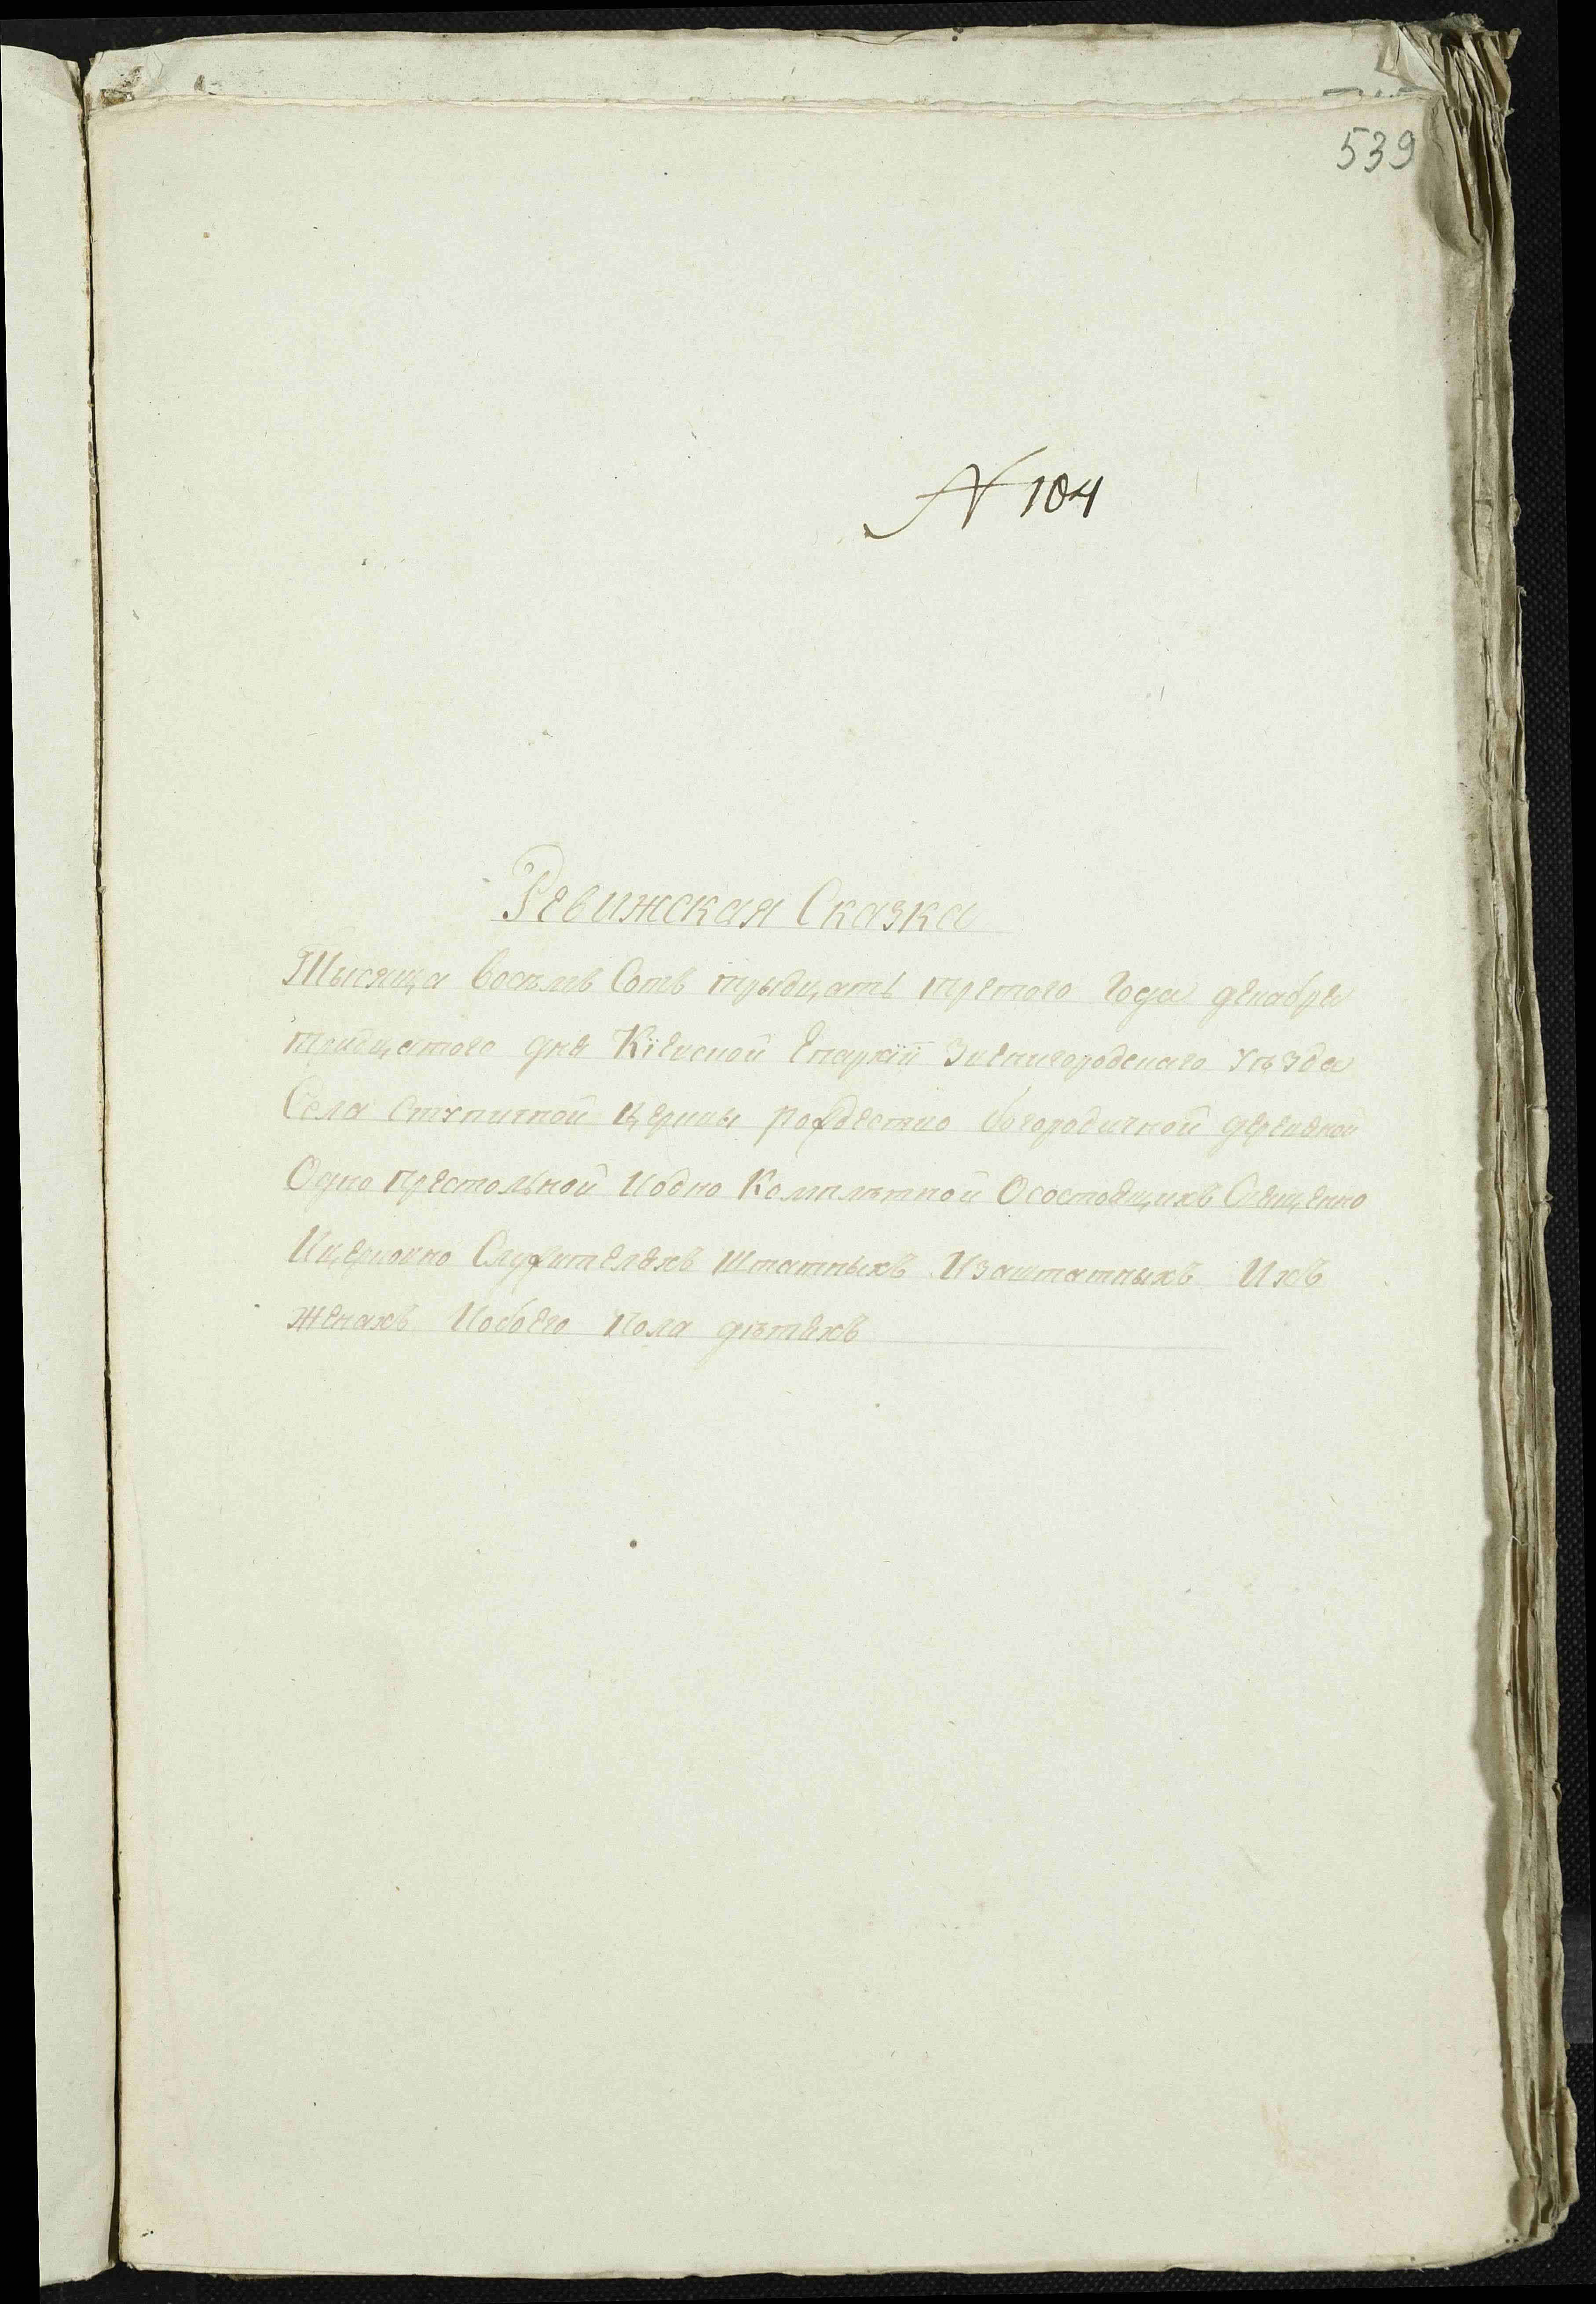 539
N 104
Ревижская Сказка
Тысяща восѣмъ Сотъ трыдцать третого года декабря
тридцатого дня Кіевской Епархіи Звенигородскаго уѣзда
Села Ступичной церквы рождество богородичной деревяной
Одно престольной Иодно Комплѣтной Осостоящихъ Священно
Ицерковно Служителяхъ Штатныхъ Изаштатныхъ Ихъ
женахъ Иобоего Пола дѣтяхъ